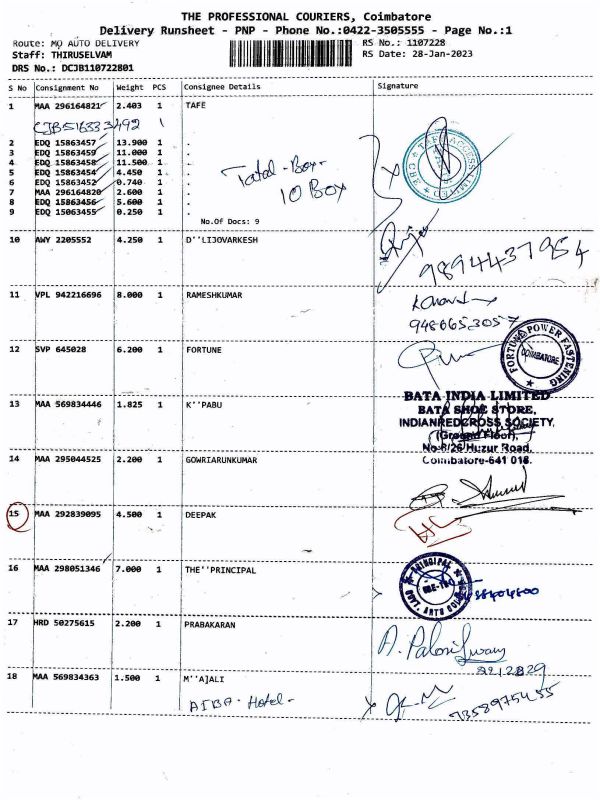 THE PROFESSIONAL COURIERS, Coimbatore
Delivery Runsheet - PNP - Phone No.:0422-3505555 - Page No.:1
Route: MO AUTO DELIVERY
RS No.: 1107228
Staff: THIRUSELVAM
RS Date: 28-Jan-2023
DRS No.: DCJB110722801
S No Consignment No Weight PCS Consignee Details Signature
1 MAA 296164821 2.403 1 TAFE
CJB516333492 1
2 EDQ 15863457 13.900 1 .
3 EDQ 15863459 11.000 1 .
4 EDQ 15863458 11.500 1 .
5 EDQ 15863454 4.450 1 .
6 EDQ 15863452 0.740 1 .
7 MAA 296164820 2.600 1 .
8 EDQ 15863456 5.600 1 .
9 EDQ 15063455 0.250 1 .
Total - Box -
10 Box
No.Of Docs: 9
10 AWY 2205552 4.250 1 D''LIJOVARKESH
9894437954
11 VPL 942216696 8.000 1 RAMESHKUMAR
9486653057
12 SVP 645028 6.200 1 FORTUNE
FORTUNE POWER FASTENING
COIMBATORE
13 MAA 569834446 1.825 1 K''PABU
BATA INDIA LIMITED
BATA SHOE STORE,
INDIANREDCROSS SOCIETY,
(Ground Floor),
No-8/26 Huzur Road,
Coimbatore-641 018.
14 MAA 295044525 2.200 1 GOWRIARUNKUMAR
15 MAA 292839095 4.500 1 DEEPAK
16 MAA 298051346 7.000 1 THE''PRINCIPAL
PRINCIPAL
GOVT. ARTS
17 HRD 50275615 2.200 1 PRABAKARAN
18 MAA 569834363 1.500 1 M''A]ALI
AIBA Hotel-